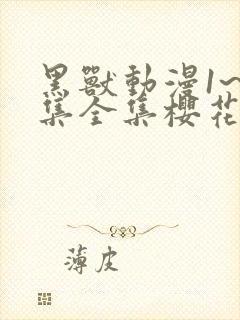 黑獸動漫1~
集全集櫻花
薄皮